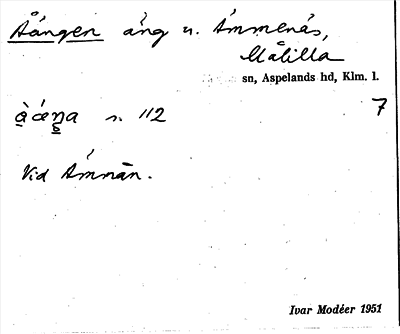 Åängen äng u. Ämmenäs,
Målilla
sn, Aspelands hd, Klm. l.
s. 112
7
Vid Ämmån.
Ivar Modéer 1951